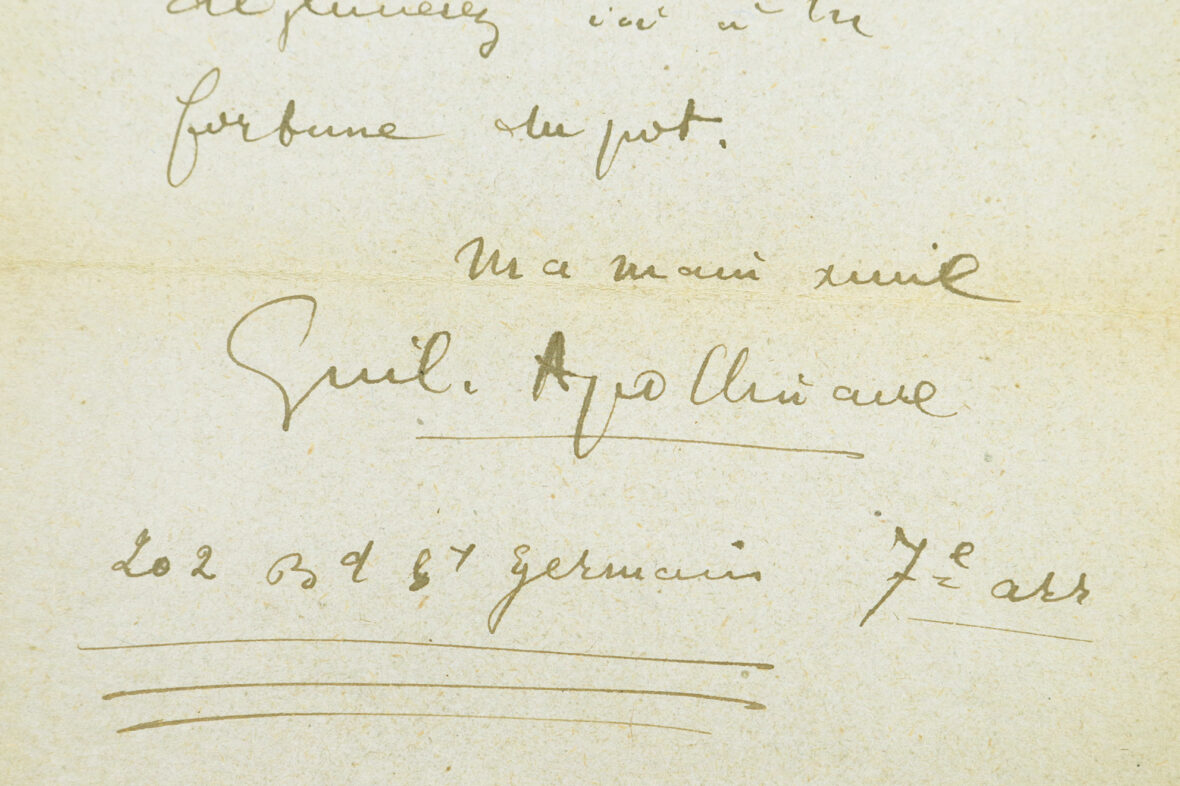 déjeunerez ici à la
fortune du pot.
Ma main amie
Guil. Apollinaire
202 Bd St Germain 7e arr